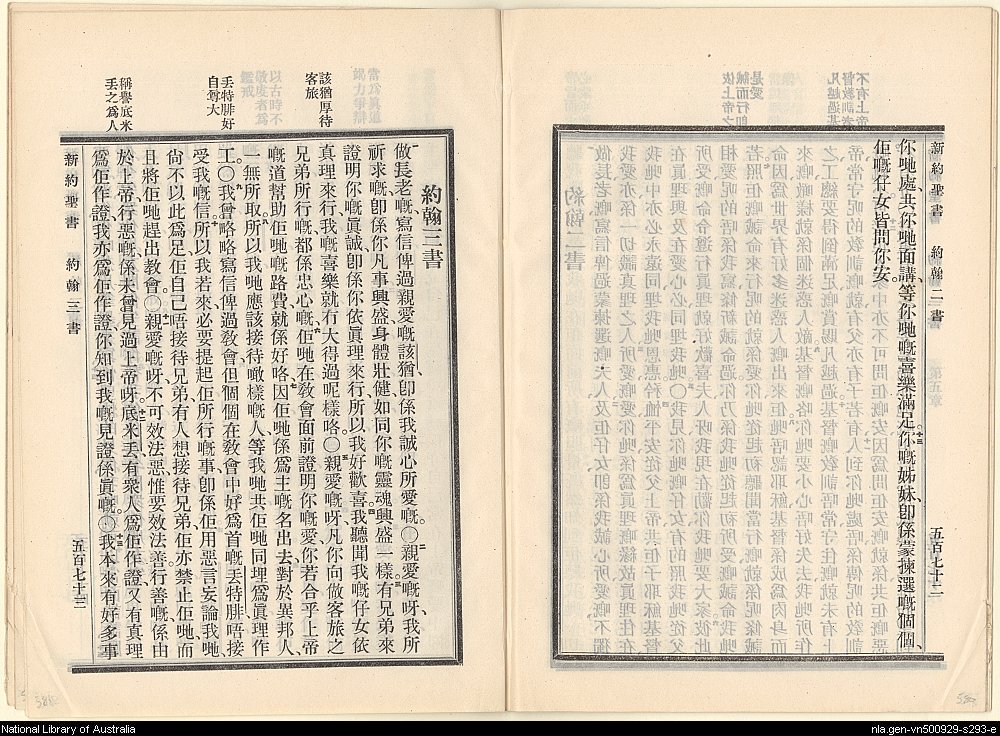 新約聖書 約翰二書 五百七十二
你哋處、共你哋面講、等你哋嘅喜樂滿足、你嘅姊妹、卽係蒙揀選嘅個個、
佢嘅仔女、皆問你安。
不有上帝
督教訓者
凡越過基
是愛
誡而行卽
依上帝之
約翰三書
做長老嘅寫信俾過親愛嘅該猶、卽係我誠心所愛嘅。○親愛嘅呀、我所
祈求嘅、卽係你凡事興盛、身體壯健、如同你嘅靈魂興盛一樣。有兄弟來
證明你嘅眞誠、卽係你依眞理來行、所以我好歡喜。我聽聞我嘅仔女依
眞理來行、我嘅喜樂就冇大得過呢樣咯。○親愛嘅呀、凡你向做客旅之
兄弟所行嘅、都係忠心嘅、佢哋在敎會面前證明你嘅愛、你若合乎上帝
嘅道幫助佢哋嘅路費、就係好咯、因佢哋係爲主嘅名出去、對於異邦人
一無所取、所以我哋應該接待噉樣嘅人、等我哋共佢哋同埋爲眞理作
工。○我曾略略寫信俾過敎會、但個個在敎會中好爲首嘅丟特腓、唔接
受我嘅信、所以我若來、必要提起佢所行嘅事、卽係佢用惡言妄論我哋、
尙不以此爲足、佢自己唔接待兄弟、有人想接待兄弟、佢亦禁止佢哋、而
且將佢哋趕出敎會。○親愛嘅呀、不可效法惡、惟要效法善、行善嘅係由
於上帝、行惡嘅係未曾見過上帝呀。底米丟有衆人爲佢作證、又有眞理
爲佢作證、我亦爲佢作證、你知到我嘅見證係眞嘅。○我本來有好多事
新約聖書 約翰三書 五百七十三
該猶厚待
客旅
丟特腓好
自尊大
稱譽底米
丟之爲人
National Library of Australia
nla.gen-vn500929-s293-e